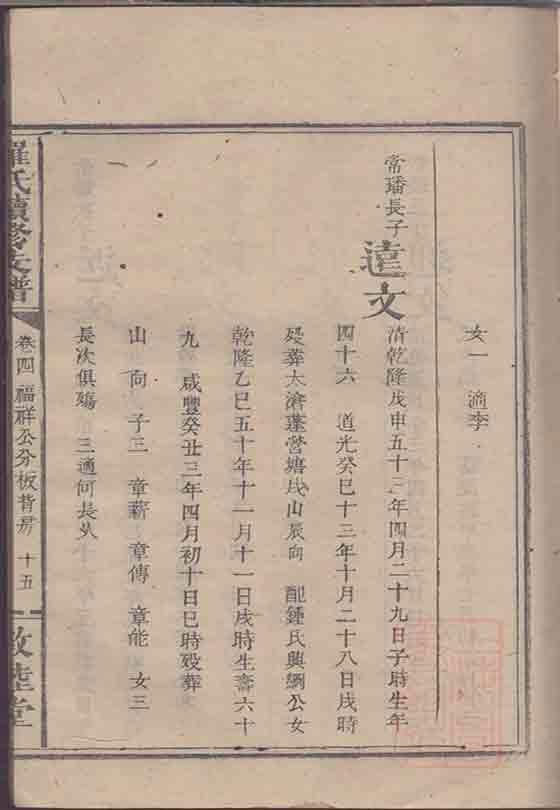 女一 適李
常璠長子
達文
清乾隆戊申五十三年四月二十九日子時生年
四十六 道光癸巳十三年十月二十八日戌時
殁葬太滄蓬营塘戌山辰向 配鍾氏興綱公女
乾隆乙巳五十年十一月十一日戌時生壽六十
九 咸豐癸丑三年四月初十日巳時殁葬
山 向 子三 章薪 章傳 章能 女三
長次俱殤 三適何長从
羅氏續修支譜
卷四 福祥公分板背房 十五
敦睦堂